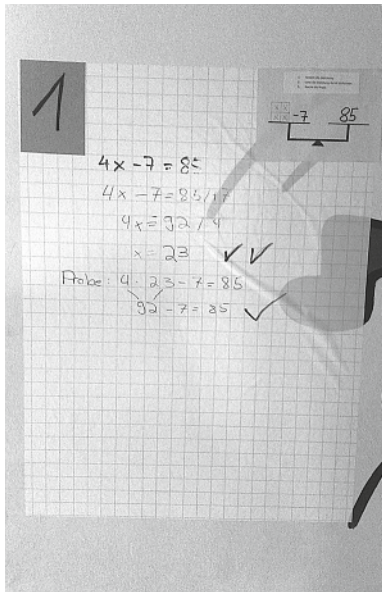 1
-7 85
4x - 7 = 85
4x - 7 = 85 /+7
4x = 92 / 4
x = 23
Probe: 4 · 23 - 7 = 85
92 - 7 = 85